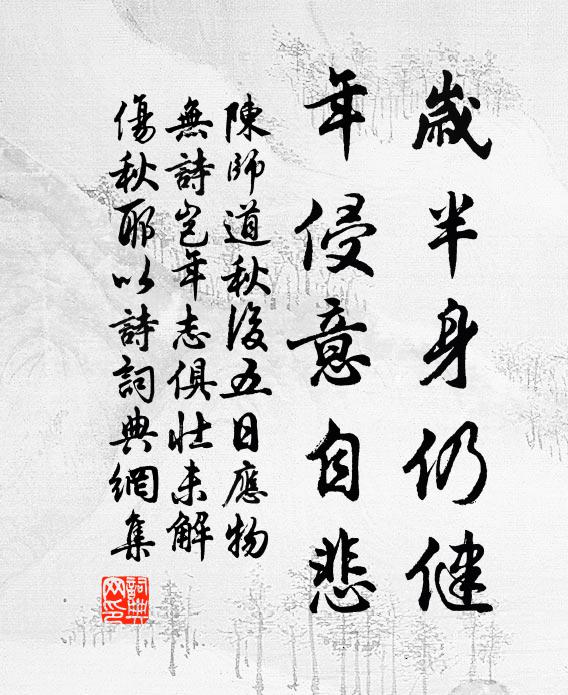 歲半身仍健
年侵意自悲
陳師道秋後五日應物
無詩豈年志俱壯未解
傷秋耶以詩詞典網集
詞典
网印